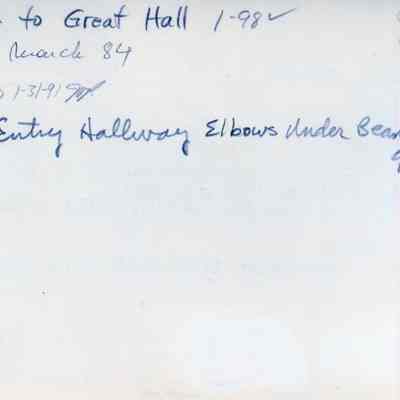 to Great Hall 1-98✓
March 84
1-31-91
Entry Hallway Elbows Under Bean